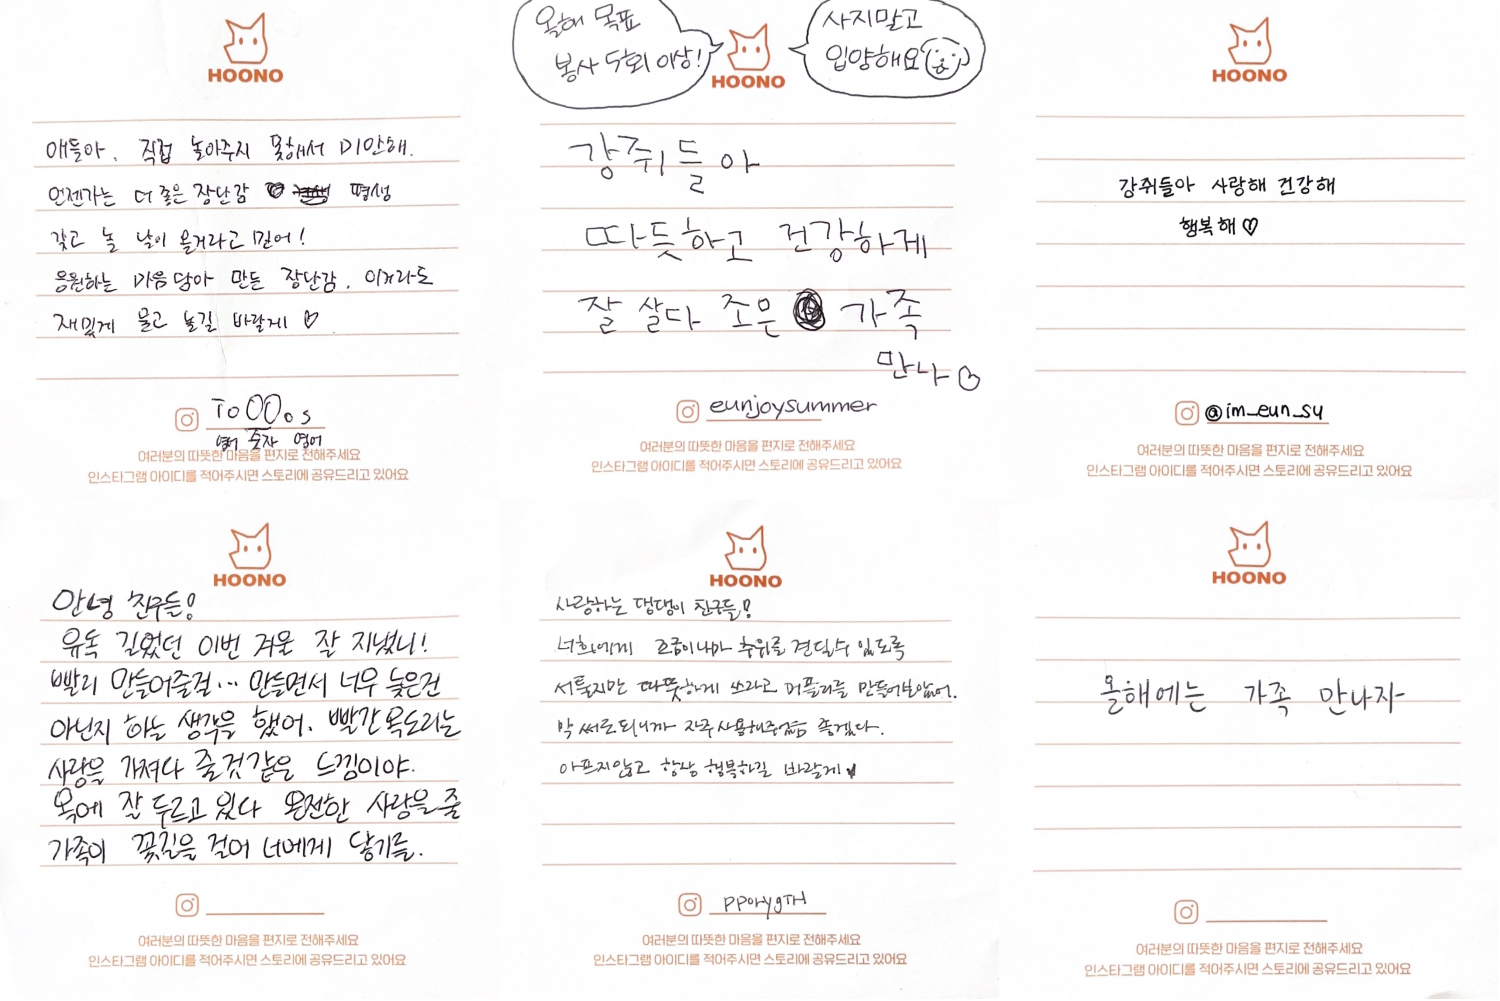 HOONO
애들아. 직접 놀아주지 못해서 미안해.
언젠가는 더 좋은 장난감 평생
갖고 놀 날이 올거라고 믿어!
응원하는 마음 담아 만든 장난감. 이거라도
재밌게 물고 놀길 바랄게 ♡
To00os
영어 숫자 영어
여러분의 따뜻한 마음을 편지로 전해주세요
인스타그램 아이디를 적어주시면 스토리에 공유드리고 있어요
올해 목표
봉사 5회 이상!
HOONO
사지말고
입양해요
강쥐들아
따듯하고 건강하게
잘 살다 조은 가족
만나♡
eunjoysummer
여러분의 따뜻한 마음을 편지로 전해주세요
인스타그램 아이디를 적어주시면 스토리에 공유드리고 있어요
HOONO
강쥐들아 사랑해 건강해
행복해♡
@im_eun_su
여러분의 따뜻한 마음을 편지로 전해주세요
인스타그램 아이디를 적어주시면 스토리에 공유드리고 있어요
HOONO
안녕 친구들!
유독 길었던 이번 겨울 잘 지냈니!
빨리 만들어줄걸... 만들면서 너무 늦은건
아닌지 하는 생각을 했어. 빨간 목도리는
사랑을 가져다 줄것같은 느낌이야.
목에 잘 두르고 있다 온전한 사랑을 줄
가족이 꽃길을 걸어 너에게 닿기를.
여러분의 따뜻한 마음을 편지로 전해주세요
인스타그램 아이디를 적어주시면 스토리에 공유드리고 있어요
HOONO
사랑하는 댕댕이 친구들!
너희에게 조금이나마 추위를 견딜수 있도록
서툴지만 따뜻하게 쓰라고 머플러를 만들어보았어.
막 써도되니까 자주 사용해주었음 좋겠다.
아프지않고 항상 행복하길 바랄게♥
여러분의 따뜻한 마음을 편지로 전해주세요
인스타그램 아이디를 적어주시면 스토리에 공유드리고 있어요
HOONO
올해에는 가족 만나자
여러분의 따뜻한 마음을 편지로 전해주세요
인스타그램 아이디를 적어주시면 스토리에 공유드리고 있어요